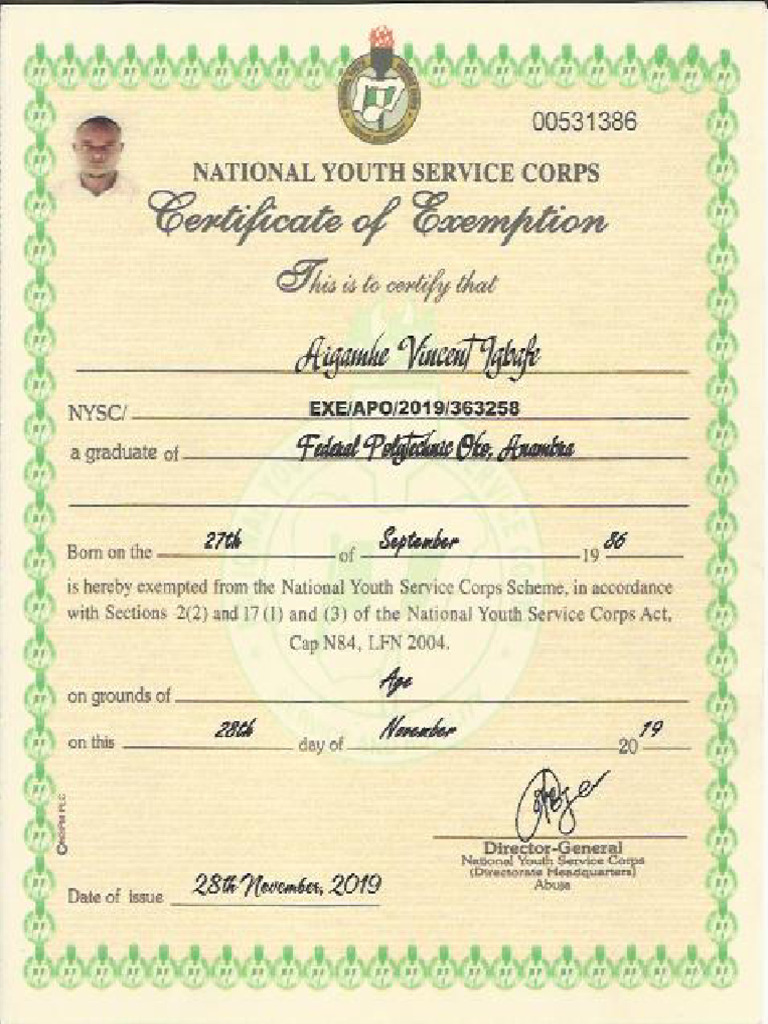 00531386
NATIONAL YOUTH SERVICE CORPS
Certificate of Exemption
This is to certify that
Aigamhe Vincent Igbafe
NYSC/ EXE/APO/2019/363258
a graduate of Federal Polytechnic Oko, Anambra
Born on the 27th of September 19 86
is hereby exempted from the National Youth Service Corps Scheme, in accordance
with Sections 2(2) and 17 (1) and (3) of the National Youth Service Corps Act,
Cap N84, LFN 2004.
on grounds of Age
on this 28th day of November 20 19
Director-General
National Youth Service Corps
(Directorate Headquarters)
Abuja
Date of issue 28th November, 2019